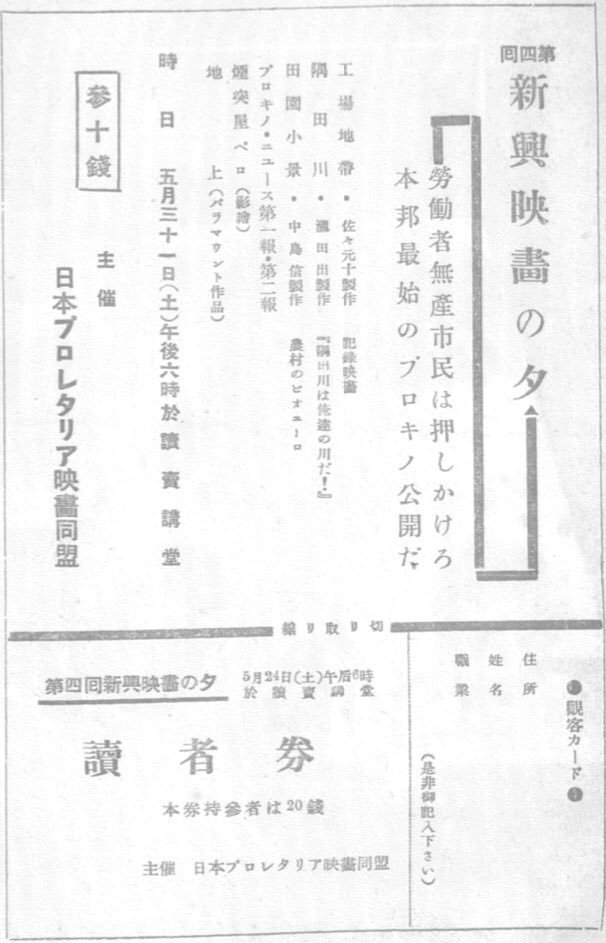 第四回
新興映畫の夕
勞働者無産市民は押しかけろ
本邦最始のプロキノ公開だ
工場地帶・佐々元十製作 記録映畫
隅田川・瀧田出製作 『隅田川は俺達の川だ!』
田園小景・中島信製作 農村のピオニーロ
プロキノ・ニュース第一報・第二報
煙突屋ペロ(影繪)
地上(パラマウント作品)
時日 五月三十一日(土)午後六時於讀賣講堂
參十錢
主催
日本プロレタリア映畫同盟
切り取り線
●觀客カード●
住所
姓名
職業
(是非御記入下さい)
第四回新興映畫の夕
5月24日(土)午后6時
於讀賣講堂
讀者券
本券持參者は20錢
主催 日本プロレタリア映畫同盟